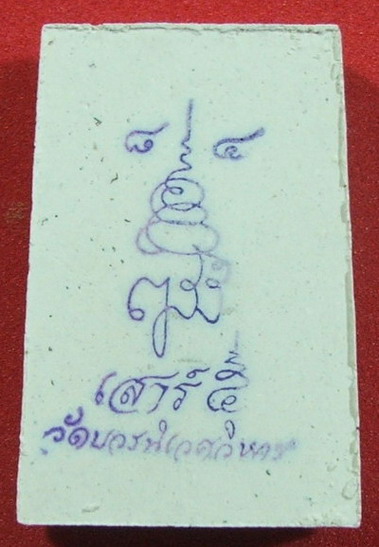 ๘ ๕
เสาร์ ๕
วัดบวรนิเวศวิหาร